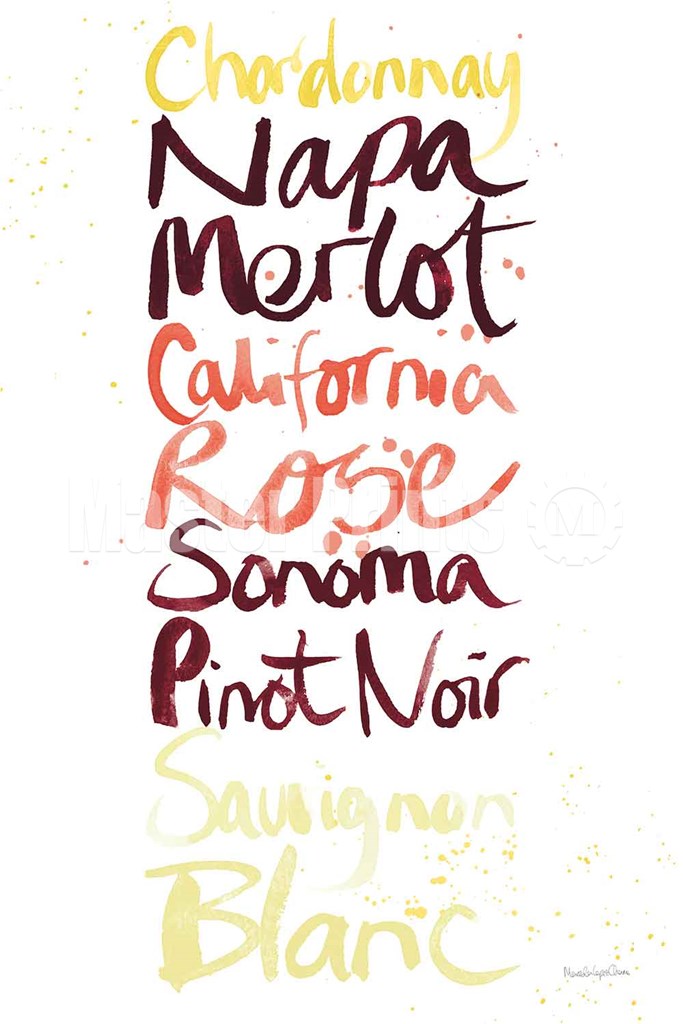 Chardonnay
Napa
Merlot
California
Rose
Master Prints M
Sonoma
Pinot Noir
Sauvignon
Blanc